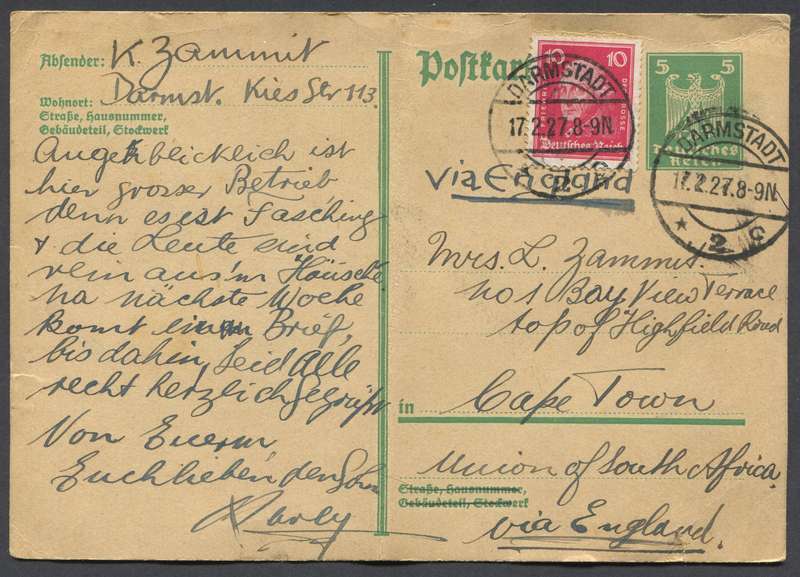 Absender: K. Zammit
Wohnort: Darmst. Kies Str 113.
Straße, Hausnummer,
Gebäudeteil, Stockwerk
Augenblicklich ist
hier grosser Betrieb
denn es ist Fasching
+ die Leute sind
rein aus'm Häusche
na nächste Woche
komt ein Brief,
bis dahin seid Alle
recht herzlich gegrüsst
Von Euerm
Euch lieben den Sohn
Karly
Postkarte
10 10
Deutsches Reich
5 5
Deutsches
Reich
DARMSTADT
17.2.27.8-9N
2
DARMSTADT
17.2.27.8-9N
* 2
via England
Mrs. L. Zammit.
no 1 Bay View Terrace
top of "Highfield Road
in Cape Town
Union of South Africa.
Straße, Hausnummer,
Gebäudeteil, Stockwerk
via England.